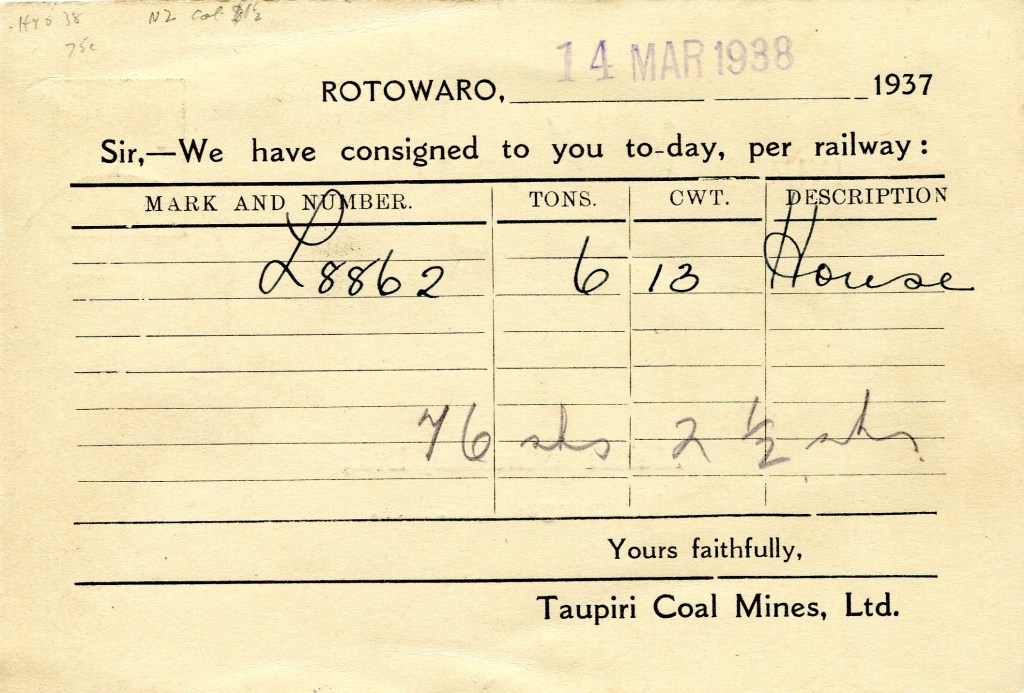 NZ
75c
14 MAR 1938
ROTOWARO, 1937
Sir,—We have consigned to you to-day, per railway:
MARK AND NUMBER. TONS. CWT. DESCRIPTION
L8862 6 13 House
76 sks 2 ½ sks
Yours faithfully,
Taupiri Coal Mines, Ltd.